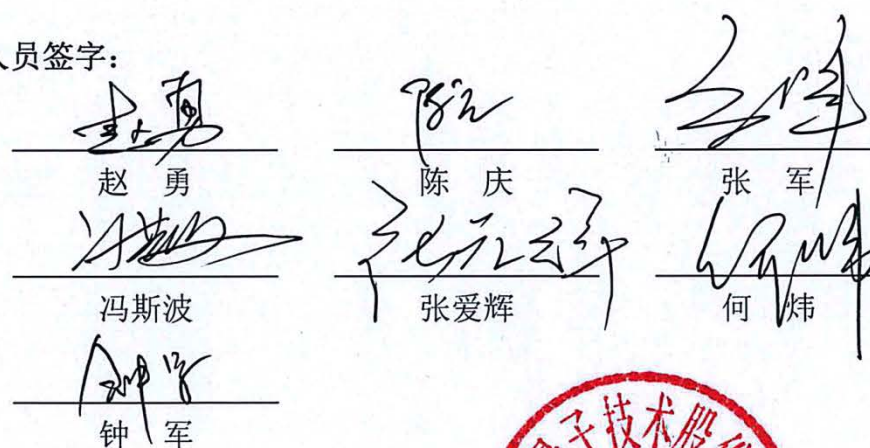 人员签字:
赵 勇 陈 庆 张 军
冯斯波 张爱辉 何 炜
钟 军
子技术股份